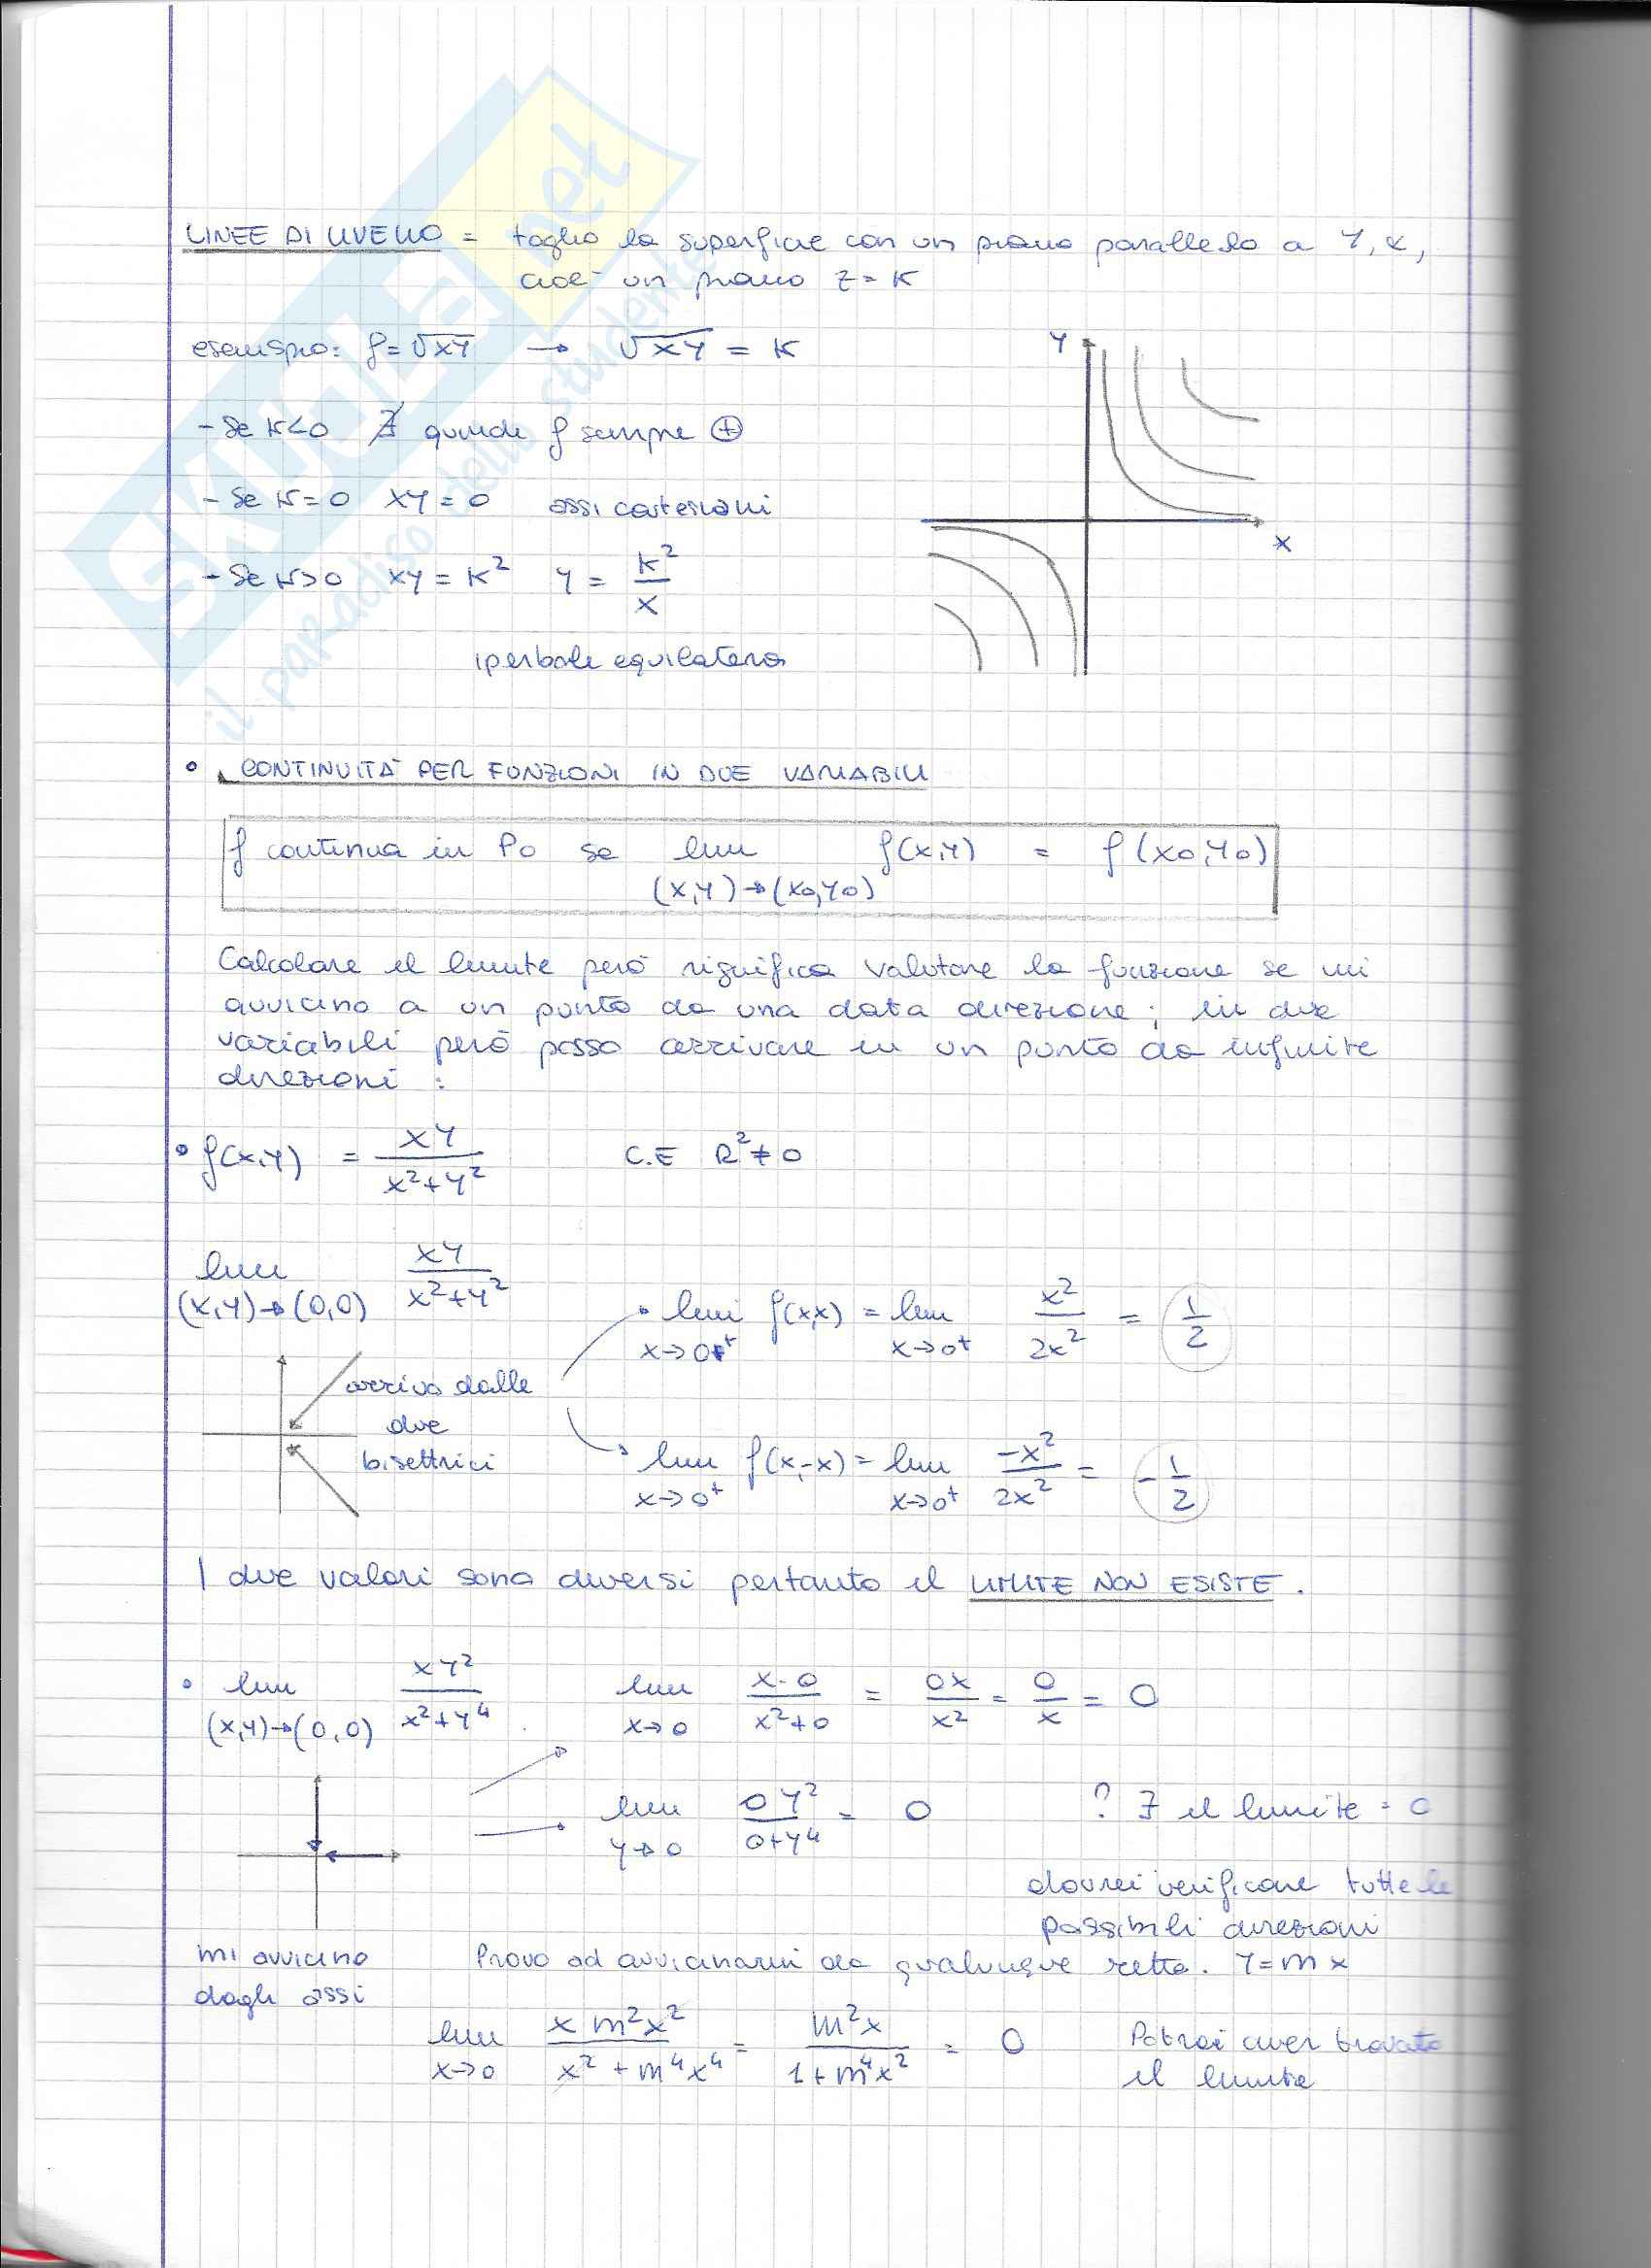 LINEE DI LIVELLO = taglio la superficie con un piano parallelo a Y, X,
cioè un piano z = K
esempio: f = √XY → √XY = K
- Se K<0 ∄ quindi f sempre ⊕
- Se K=0 XY = 0 assi cartesiani
- Se K>0 XY = K² Y = K²/X
iperbole equilatera
Y
X
• CONTINUITÀ PER FUNZIONI IN DUE VARIABILI
f continua in P0 se lim (X,Y)→(X0,Y0) f(X,Y) = f(X0,Y0)
Calcolare il limite però significa valutare la funzione se mi
avvicino a un punto da una data direzione; in due
variabili però posso arrivare in un punto da infinite
direzioni :
• f(X,Y) = XY/(X²+Y²) C.E R²≠0
lim (X,Y)→(0,0) XY/(X²+Y²)
• lim x→0⁺ f(x,x) = lim x→0⁺ x²/2x² = 1/2
arrivo dalle
due
bisettrici
lim x→0⁺ f(x,-x) = lim x→0⁺ -x²/2x² = -1/2
I due valori sono diversi pertanto il LIMITE NON ESISTE.
• lim (X,Y)→(0,0) XY²/(X²+Y⁴) lim x→0 x·0/(x²+0) = 0x/x² = 0/x = 0
lim y→0 0Y²/(0+Y⁴) = 0 ? ∃ il limite = 0
dovrei verificare tutte le
possibili direzioni
mi avvicino
dagli assi
Provo ad avvicinarmi da qualunque retta. Y=mx
lim x→0 x m²x²/(x² + m⁴x⁴) = m²x/(1+m⁴x²) = 0 Potrei aver trovato
il limite
SKUOLA.net
il paradiso dello studente